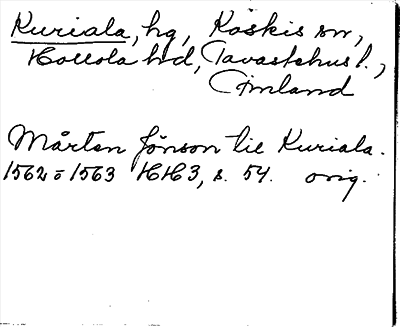 Kuriala, hg, Koskis sn,
Hollola hd, Tavastehus l.,
Finland
Mårten Jönson til Kuriala.
1562 o 1563 HH3, s. 54. orig.